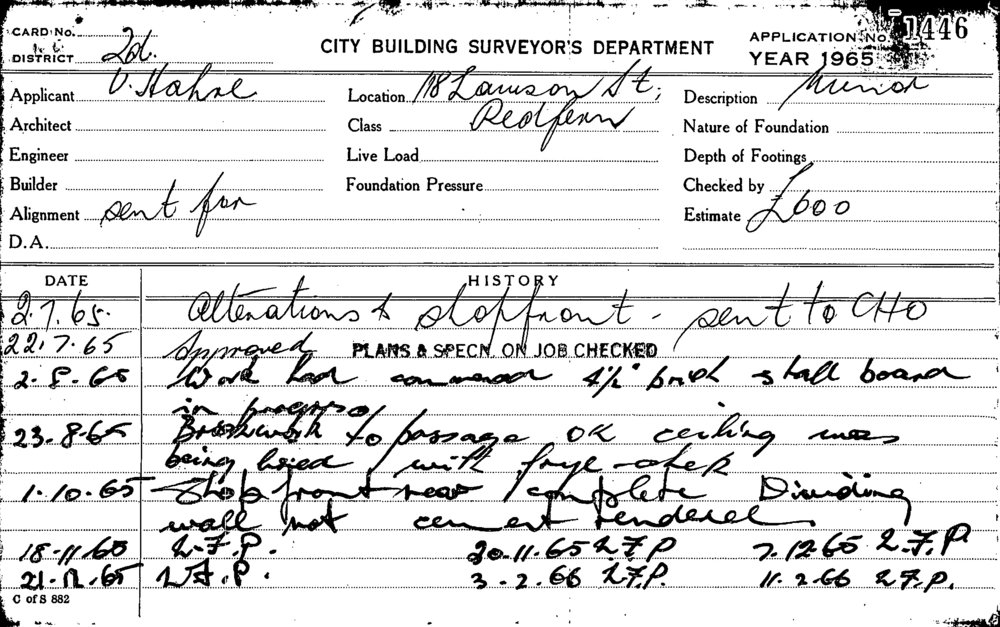 CARD No.
DISTRICT 2d.
CITY BUILDING SURVEYOR'S DEPARTMENT
APPLICATION No. 1446
YEAR 1965
Applicant V. Hahne
Location 118 Lawson St,
Redfern
Description Minor
Architect
Class
Nature of Foundation
Engineer
Live Load
Depth of Footings
Builder
Foundation Pressure
Checked by
Alignment sent for
Estimate £600
D.A.
DATE HISTORY
2.7.65. Alterations to shopfront - sent to CHO
22.7.65 Approved PLANS & SPECN. ON JOB CHECKED
2-8-65 Work had commenced 4½" brick stall board
in progress
23.8.65 Brickwork to passage OK ceiling was
being with
1.10.65 Shop front near complete Dividing
wall not cement rendered
18-11-65 W.F.P. 30-11.65 W.F.P 7.12.65 W.F.P
21.12.65 W.F.P. 3-2.66 W.F.P. 11.2.66 W.F.P.
C of S 882